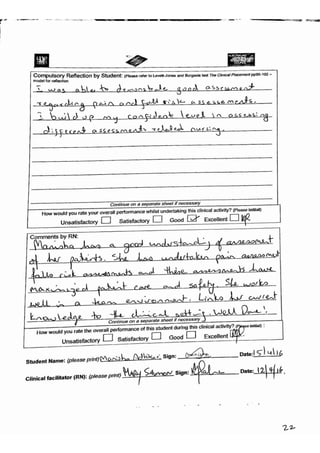 Compulsory Reflection by Student: (Please refer to Levett-Jones and Bourgeois text The Clinical Placement pp95-102 – model for reflection
I was able to demonstrate good assessment
regarding pain and fall risk assessments.
I build up my confident level in assessing
different assessments related nursing.
Continue on a separate sheet if necessary
How would you rate your overall performance whilst undertaking this clinical activity? (Please initial):
Unsatisfactory Satisfactory Good Excellent
Comments by RN:
Manisha has a good understanding of assessment
of her patients. She has undertaken pain assessment
falls risk assessments and these assessments have
maximized patient care and safety. She works
well in a team environment. Links her current
knowledge to the clinical setting. Well Done.
Continue on a separate sheet if necessary
How would you rate the overall performance of this student during this clinical activity? (Please initial):
Unsatisfactory Satisfactory Good Excellent
Student Name: (please print) Manisha Adhikari Sign: Date: 15/4/16
Clinical facilitator (RN): (please print) Mary Sign: Date: 12/4/16.
22